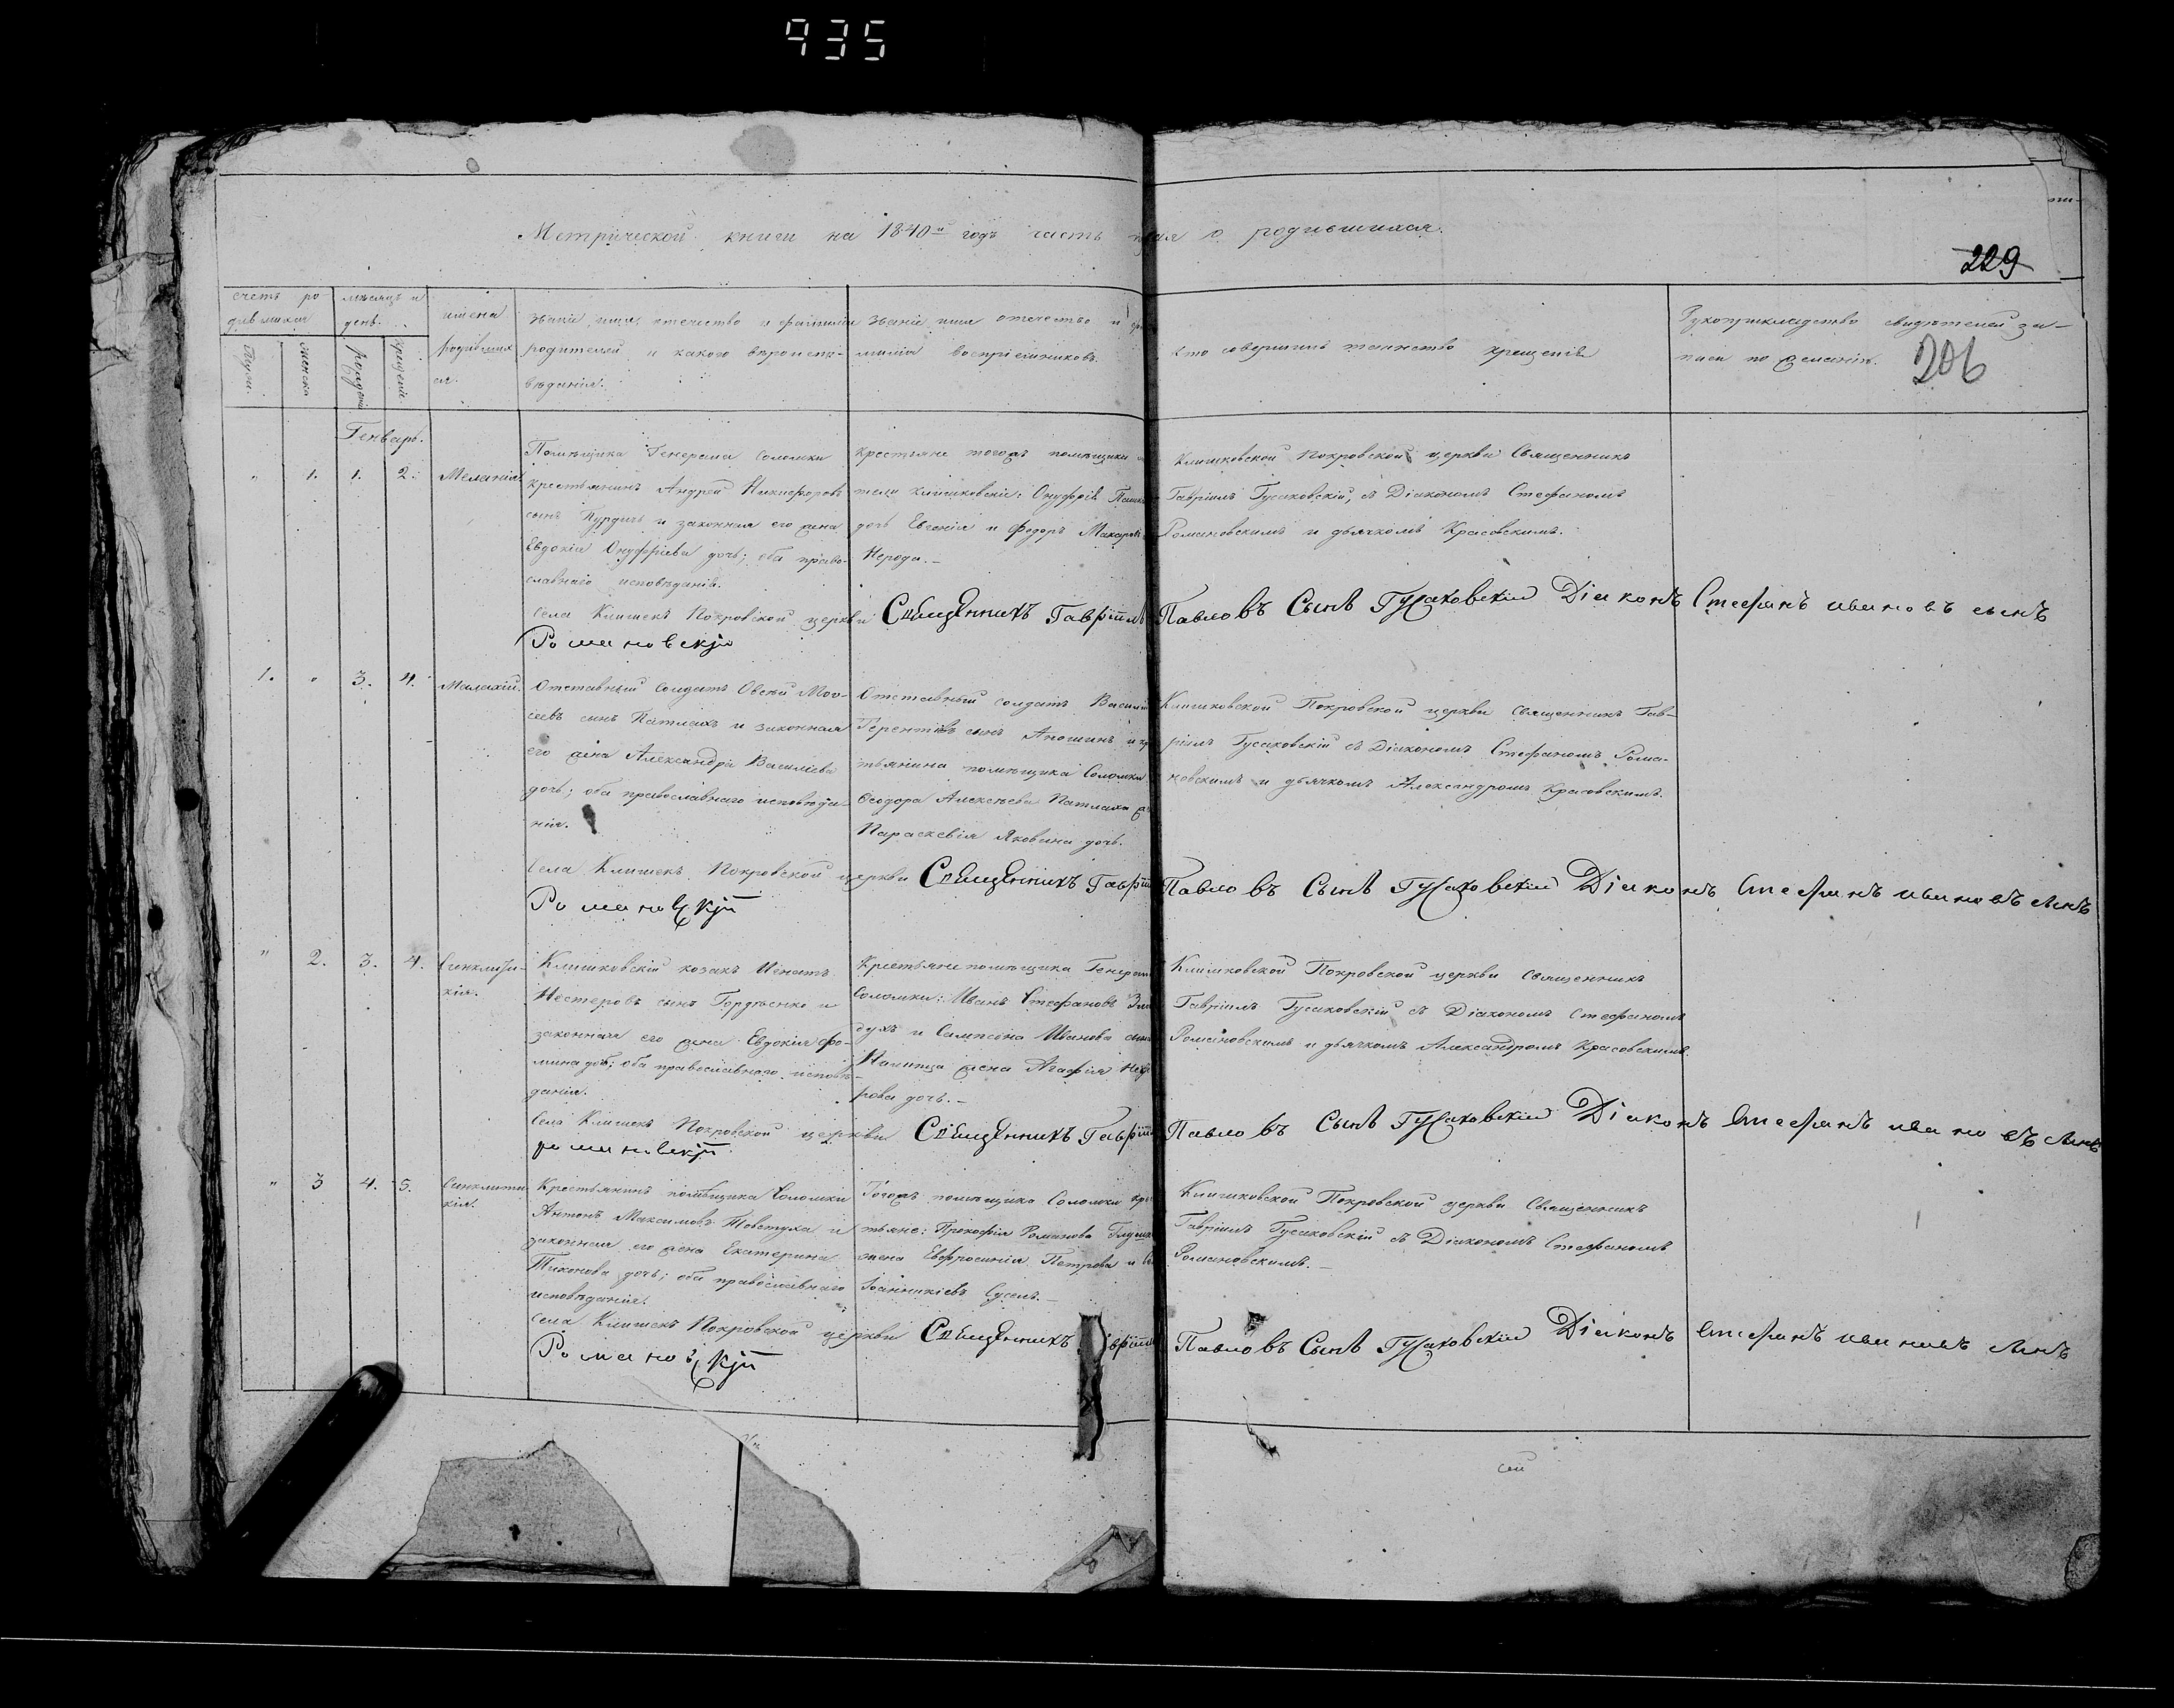 935
Метрической книги на 1840й годъ часть о родившихся.
229
счетъ ро-
дившихся
мѣсяцъ и
день.
имена
родивших
ся.
Званіе, имя, отечество и фамилія
родителей, и какого вѣроиспо-
вѣданія.
Званіе имя отечество и фа
милія воспріемниковъ.
кто совершилъ таинство крещенія
Рукоприкладство свидѣтелей за-
писи по желанію.
206
Муж.
Женска
рожденія
крещенія
Генварь.
" 1. 1. 2. Меланія
Помѣщика Генерала Соломки
крестьянинъ Андрей Никифоровъ
сынъ Курдичъ и законная его жена
Евдокія Онуфріева дочь; оба право-
славнаго исповѣданія.
крестьяне тогожъ помѣщика
Клишковскіе: Онуфрія
дочь Евгенія и Федоръ Макаров
Нерода.-
Клишковской Покровской церкви Священникъ
Гавріилъ Гусаковскій, съ Діакономъ Стефаномъ
Романовскимъ и дьячкомъ Красовскимъ.
Села Клишекъ Покровской церкви Священникъ Гавріилъ Павловъ Сынъ Гусаковскій Діаконъ Стефанъ Ивановъ сынъ
Романовскій
1. " 3. 4. Малахій.
Отставный солдатъ Овсей Мои-
сеевъ сынъ Патлахъ и законная
его жена Александра Василіева
дочь; оба православнаго исповѣда-
нія.
Отставный солдатъ Василій
Терентіевъ сынъ Апошинъ и кр
тьянина помѣщика Соломки
Феодора Алексѣева Патлаха ж
Параскевія Яковина дочь.
Клишковской Покровской церкви священникъ Гав-
ріилъ Гусаковскій съ Діакономъ Стефаномъ Рома-
новскимъ и дьячкомъ Александромъ Красовскимъ.
Села Клишекъ Покровской церкви Священникъ Гавріи Павловъ Сынъ Гусаковскій Діаконъ Стефанъ Ивановъ сынъ
Романовскій
" 2. 3. 4. Сигклити-
кія.
Клишковскій козакъ Игнатъ
Нестеровъ сынъ Гордѣенко и
законная его жена Евдокія Фо-
мина дочь; оба православнаго исповѣ-
данія.
Крестьяне помѣщика Генерала
Соломки: Иванъ Стефановъ
духъ и Сампсона Иванова сына
жена Агафія
рова дочь.-
Клишковской Покровской церкви священникъ
Гавріилъ Гусаковскій съ Діакономъ Стефаномъ
Романовскимъ и дьячкомъ Александромъ Красовскимъ.
Села Клишекъ Покровской церкви Священникъ Гавріи Павловъ Сынъ Гусаковскій Діаконъ Стефанъ Ивановъ сынъ
Романовскій
" 3 4. 5. Синклити
кія.
Крестьянинъ помѣщика Соломки
Антонъ Максимовъ Товстуха и
законная его жена Екатерина
Тихонова дочь; оба православнаго
исповѣданія.
Тогожъ помѣщика Соломки кре
тьяне: Прокофія Романова
жена Евфросинія Петрова и
Іоанникіевъ Сусель.-
Клишковской Покровской церкви Священникъ
Гавріилъ Гусаковскій съ Діакономъ Стефаномъ
Романовскимъ.-
Села Клишекъ Покровской церкви Священникъ Гавріил Павловъ Сынъ Гусаковскій Діаконъ Стефанъ Ивановъ сынъ
Романовскій